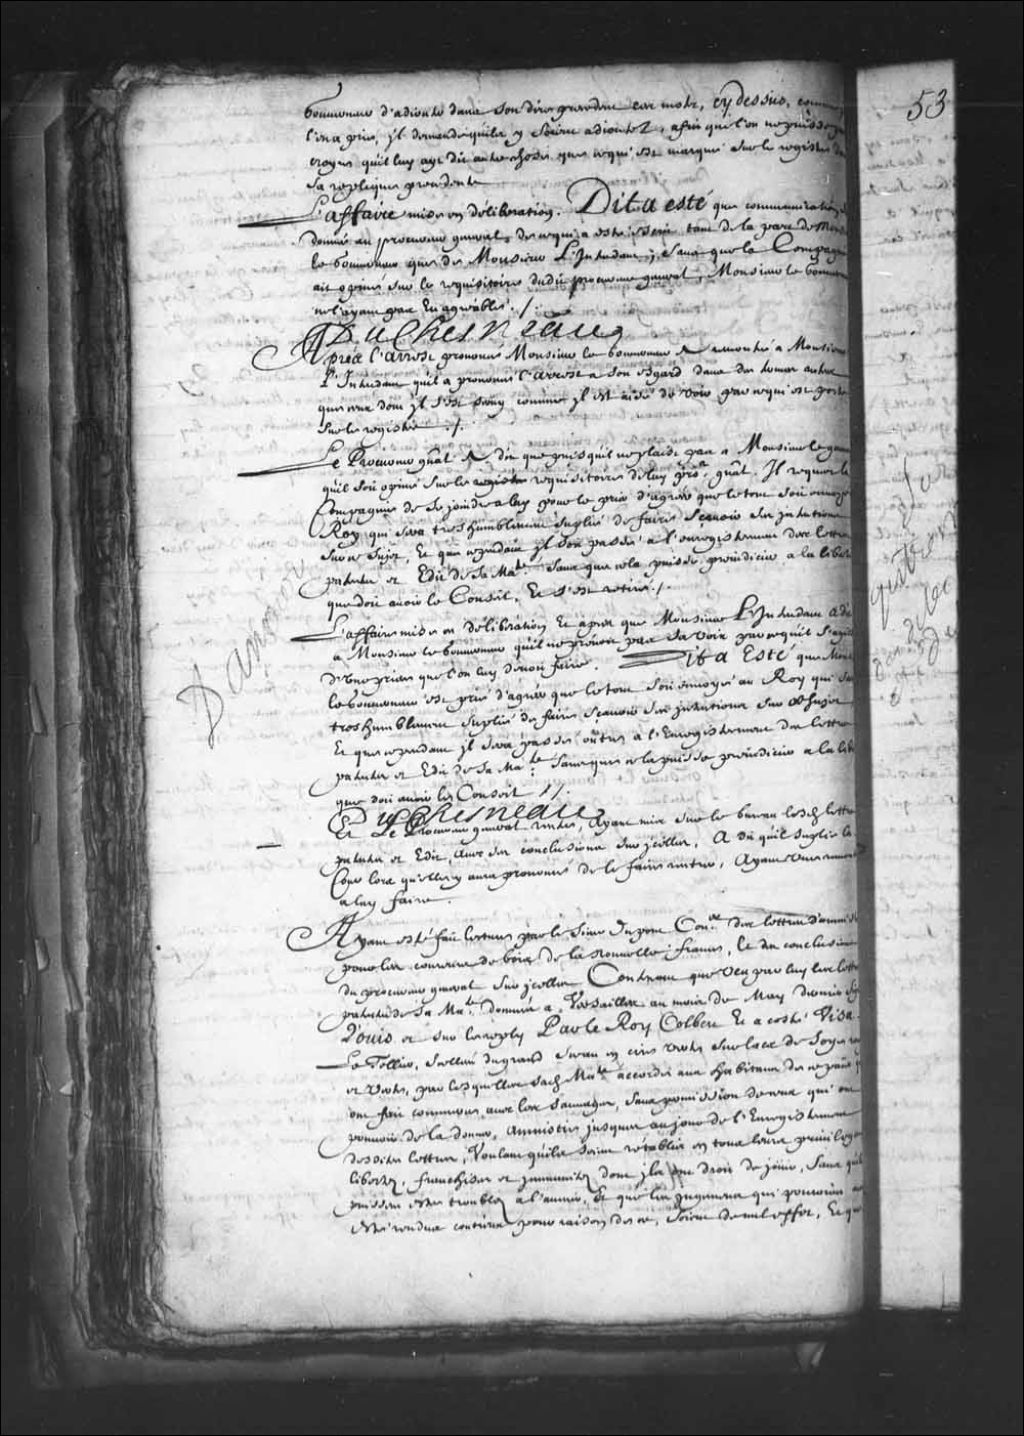 Gouverneur d'adiouter dans son dire precedent ces mots, cy dessus, comme
l'en a prié, jl demande quils y soient adioutez, afin que l'on ne puisse
croire quil luy ayt dit autre chose que ce qui est marqué sur le registre
sa replique precedente
L'affaire mise en déliberation. Dit a esté que communication
donnée au procureur general de ce qui a esté tant de la part de Monsieur
le Gouverneur que de Monsieur L'Intendant, sans que la Compagnie
ait opiné sur le requisitoire dudit procureur general, Monsieur le Gouverneur
ne l'ayant pas eu agreable ./.
DuChesneau
Aprés l'arrest prononcé Monsieur le Gouverneur a remontré a Monsieur
L'Intendant qu'il a prononcé l'arrest a son esgard dans des termes autres
que ceux dont jl s'est servy comme jl est aisé de voir par ce qui est porté
sur le registre ./.
Le Procureur gñal a dit que puisquil ne plaist pas a Monsieur le gouverneur
qu'il soit opiné sur le requisitoire de luy proʳ. gñal, Il requiert la
Compagnie de se joindre a luy pour le prier d'agreer que le tout soit envoyé
Roy qui sera tres humblement suplié de faire sçavoir ses jntentions
sur ce sujet, Et que cependant jl soit passé a l'enregistrement des lettres
patentes et Edit de Sa Maᵗᵉ. sans que cela puisse prejudicier a la liberté
que doit avoir le Conseil, Et s'est retiré ./.
L'affaire mise en déliberation Et aprés que Monsieur L'Intendant a dit
a Monsieur le Gouverneur qu'il ne prenoit pas sa voix parce qu'il s'agit
d'une priere que l'on luy devoit faire. Dit a Esté que Monsieur
le Gouverneur est prié d'agréer que le tout soit envoyé au Roy qui sera
tres humblement suplié de faire sçavoir ses jntentions sur ce sujet
Et que cependant jl sera passé outre a l'Enregistrement des lettres
patentes et Edit de Sa Maᵗᵉ. sans que cela puisse prejudicier a la liberté
que doit avoir le Conseil ./.
DuChesneau
Et Le Procureur general rentré, Ayant mis sur le bureau lesd. lettres
patentes et Edit, avec ses conclusions sur jcelles, A dit qu'il suplie la
Cour lors qu'elle y aura prononcé de le faire rentrer, Ayant
a luy faire.
Ayant esté fait lecture par le Sieur Dupont Conᵉʳ. des lettres d'amnistie
pour les coureurs de bois de la Nouvelle france, Et des conclusions
du procureur general sur jcelles Contenant que Veu par luy les lettres
patentes de Sa Maᵗᵉ. données a Versailles au mois de May dernier signé
Louis et sur le reply Par le Roy Colbert Et a costé Visa.
Le Tellier, Scellées du grand Sceau en cire verte sur lacs de soye rouge
et verte, par lesquelles sad. Maᵗᵉ accorde aux habitans de ce païs qui
ont fait commerce avec les sauvages, sans permission de ceux qui ont
pouvoir de la donner, amnistie jusques au jour de l'Enregistrement
desdites lettres, Voulant qu'ils soient rétablis en tous leurs privileges
libertez, franchises et jmmunitez dont jls ont droit de jouir, sans qu'ils
puissent estre troublez a l'avenir, Et que les jugemens qui pourroient avoir
esté rendus contr'eux pour raison de ce, soient de nul effet, Et que
D'amours
53